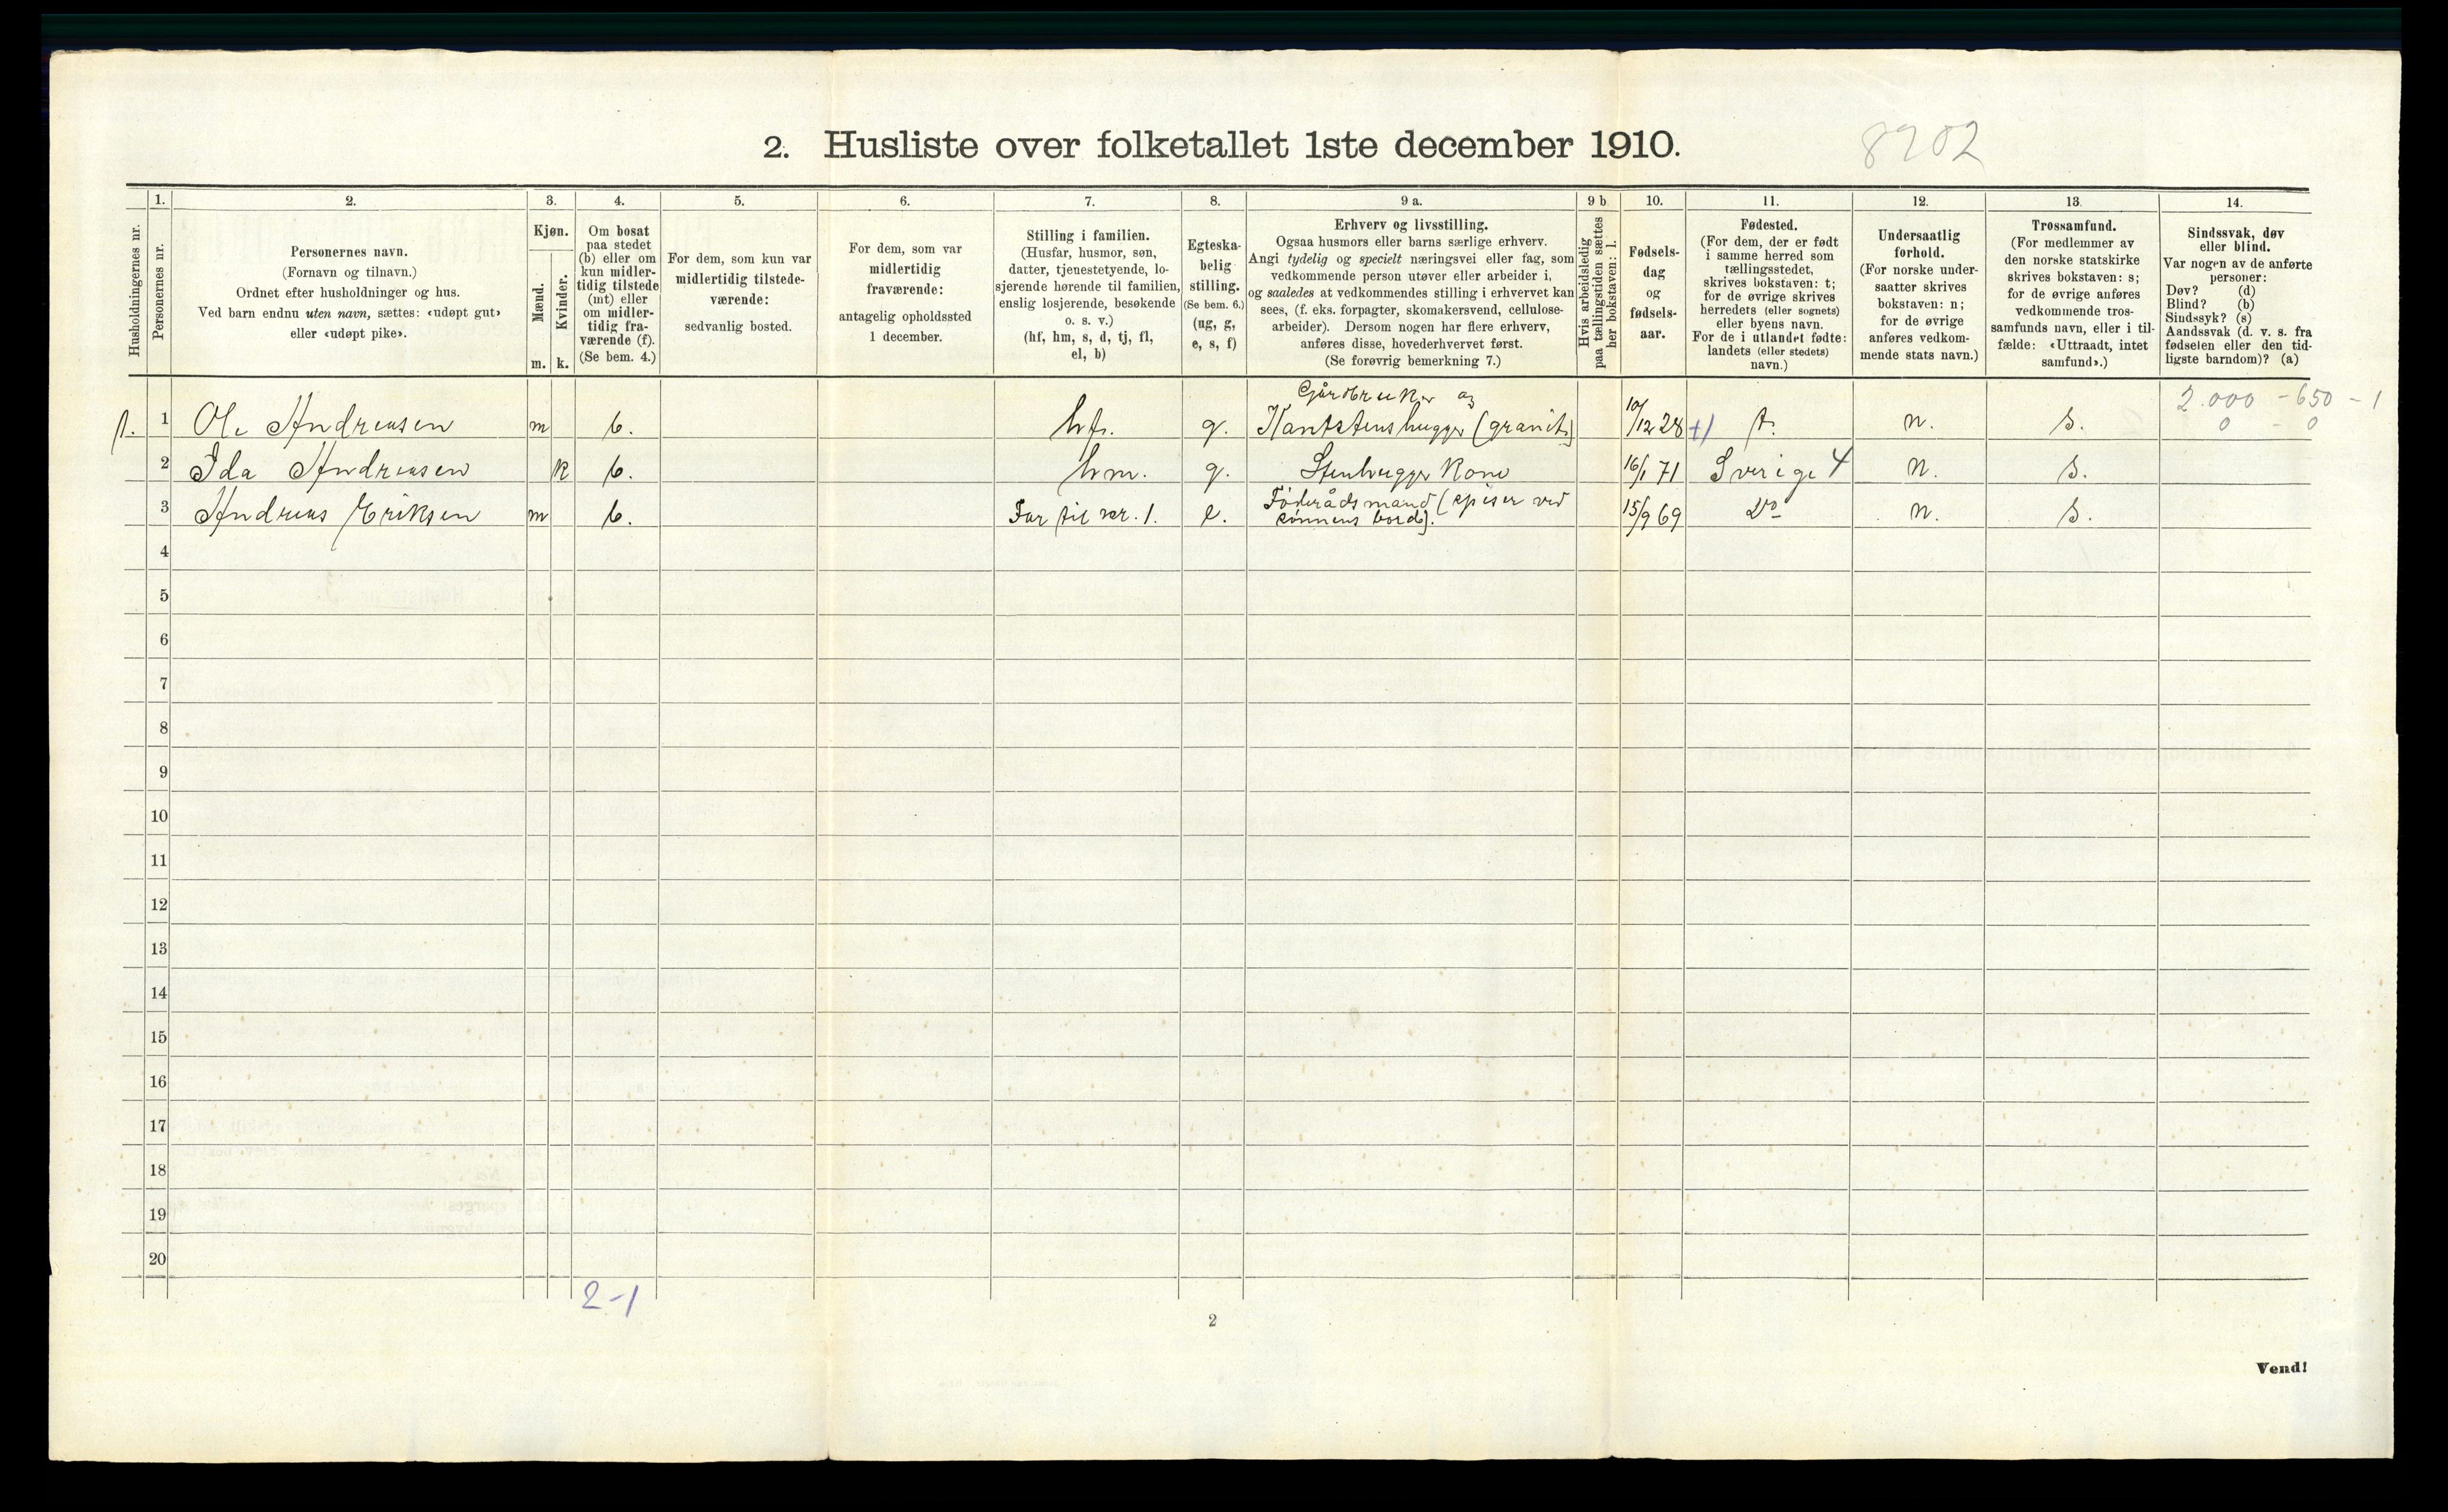 2. Husliste over folketallet 1ste december 1910.
8202
1. 2. 3. 4. 5. 6. 7. 8. 9 a. 9 b 10. 11. 12. 13. 14.
Husholdningernes nr.
Personernes nr.
Personernes navn.
(Fornavn og tilnavn.)
Ordnet efter husholdninger og hus.
Ved barn endnu uten navn, sættes: «udøpt gut»
eller «udøpt pike».
Kjøn.
Mænd.
Kvinder.
m. k.
Om bosat
paa stedet
(b) eller om
kun midler-
tidig tilstede
(mt) eller
om midler-
tidig fra-
værende (f).
(Se bem. 4.)
For dem, som kun var
midlertidig tilstede-
værende:
sedvanlig bosted.
For dem, som var
midlertidig
fraværende:
antagelig opholdssted
1 december.
Stilling i familien.
(Husfar, husmor, søn,
datter, tjenestetyende, lo-
sjerende hørende til familien,
enslig losjerende, besøkende
o. s. v.)
(hf, hm, s, d, tj, fl,
el, b)
Egteska-
belig
stilling.
(Se bem. 6.)
(ug, g,
e, s, f)
Erhverv og livsstilling.
Ogsaa husmors eller barns særlige erhverv.
Angi tydelig og specielt næringsvei eller fag, som
vedkommende person utøver eller arbeider i,
og saaledes at vedkommendes stilling i erhvervet kan
sees, (f. eks. forpagter, skomakersvend, cellulose-
arbeider). Dersom nogen har flere erhverv,
anføres disse, hovederhvervet først.
(Se forøvrig bemerkning 7.)
Hvis arbeidsledig
paa tællingstiden sættes
her bokstaven: l.
Fødsels-
dag
og
fødsels-
aar.
Fødested.
(For dem, der er født
i samme herred som
tællingsstedet,
skrives bokstaven: t;
for de øvrige skrives
herredets (eller sognets)
eller byens navn.
For de i utlandet fødte:
landets (eller stedets)
navn.)
Undersaatlig
forhold.
(For norske under-
saatter skrives
bokstaven: n;
for de øvrige
anføres vedkom-
mende stats navn.)
Trossamfund.
(For medlemmer av
den norske statskirke
skrives bokstaven: s;
for de øvrige anføres
vedkommende tros-
samfunds navn, eller i til-
fælde: «Uttraadt, intet
samfund».)
Sindssvak, døv
eller blind.
Var nogen av de anførte
personer:
Døv? (d)
Blind? (b)
Sindssyk? (s)
Aandssvak (d. v. s. fra
fødselen eller den tid-
ligste barndom)? (a)
Gårdbruker og 2.000 - 650 - 1
1. 1 Ole Andreasen m b. hf. g. Kantstenshugger (granit) 10/12 28 t. n. s. 0 - 0
2 Ida Andreasen k b. hm. g. Stenhugger Kone 16/1 71 Sverige 4 n. s.
3 Andreas Eriksen m b. Far til nr. 1. e. Føderådsmand (spiser ved
sønnens bord). 15/9 69 Do n. s.
4
5
6
7
8
9
10
11
12
13
14
15
16
17
18
19
20
2-1
2
Vend!